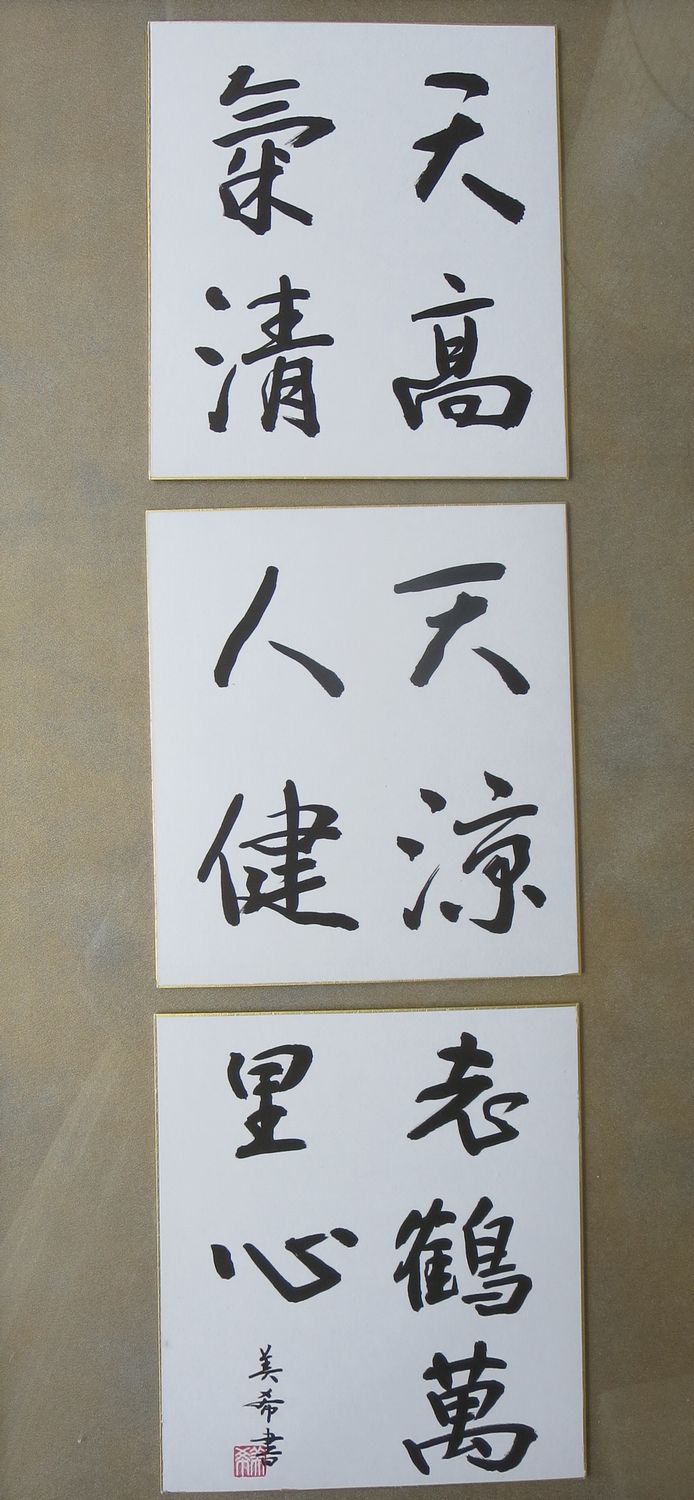 天高
氣清
天涼
人健
老鶴萬
里心
美希書